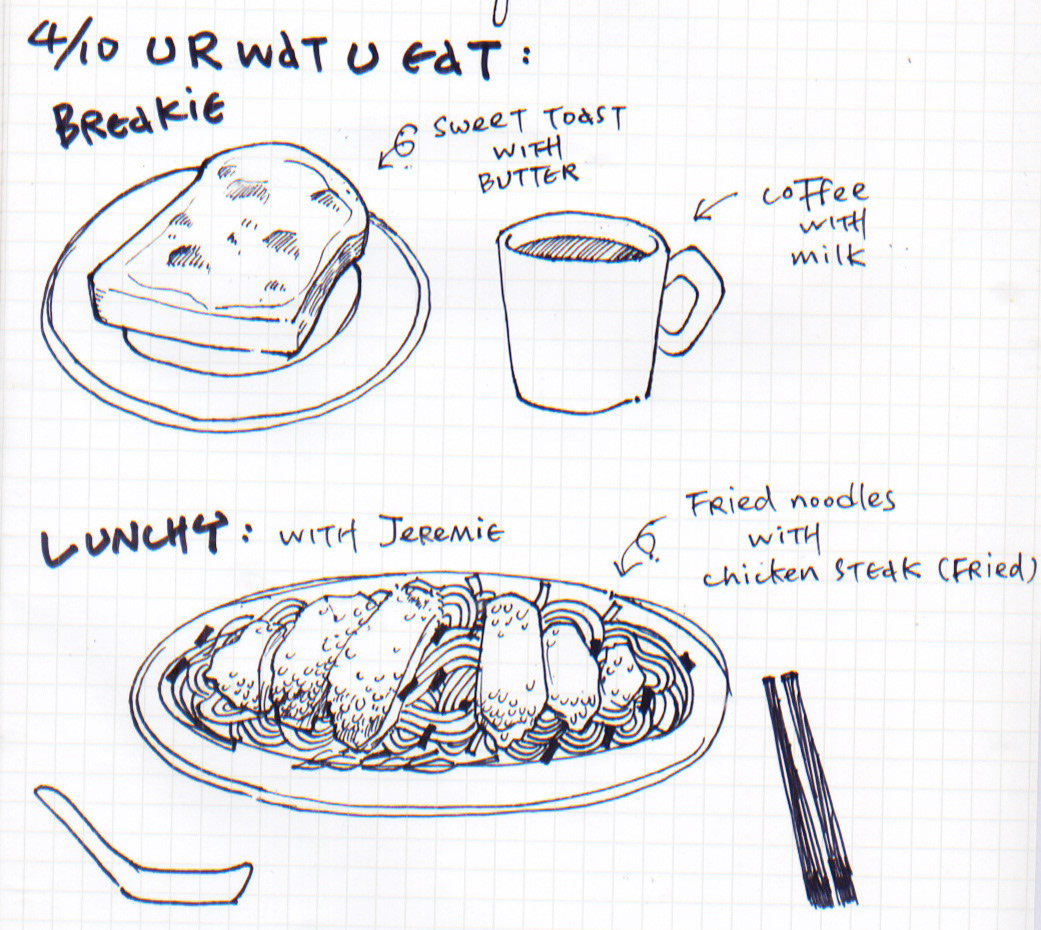 4/10 U R WaT U EaT :
BREaKiE
SWEET TOaST
WITH
BUTTER
coffee
WITH
milk
LUNCHY: WITH JEREMIE
FRied noodles
WITH
chicken STEaK (FRied)